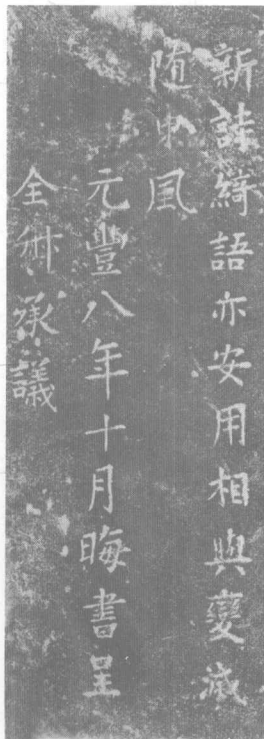 新詩綺語亦安用相與變滅
随東風
元豐八年十月晦書呈
全州承議